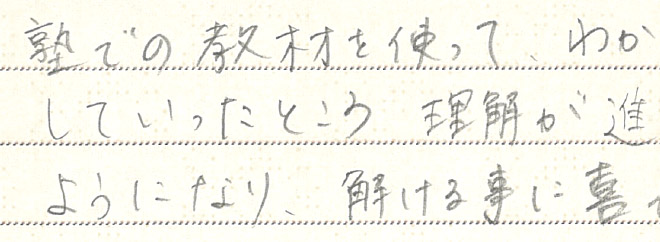 塾での教材を使って、わか
していったところ 理解が進
ようになり、解ける事に喜